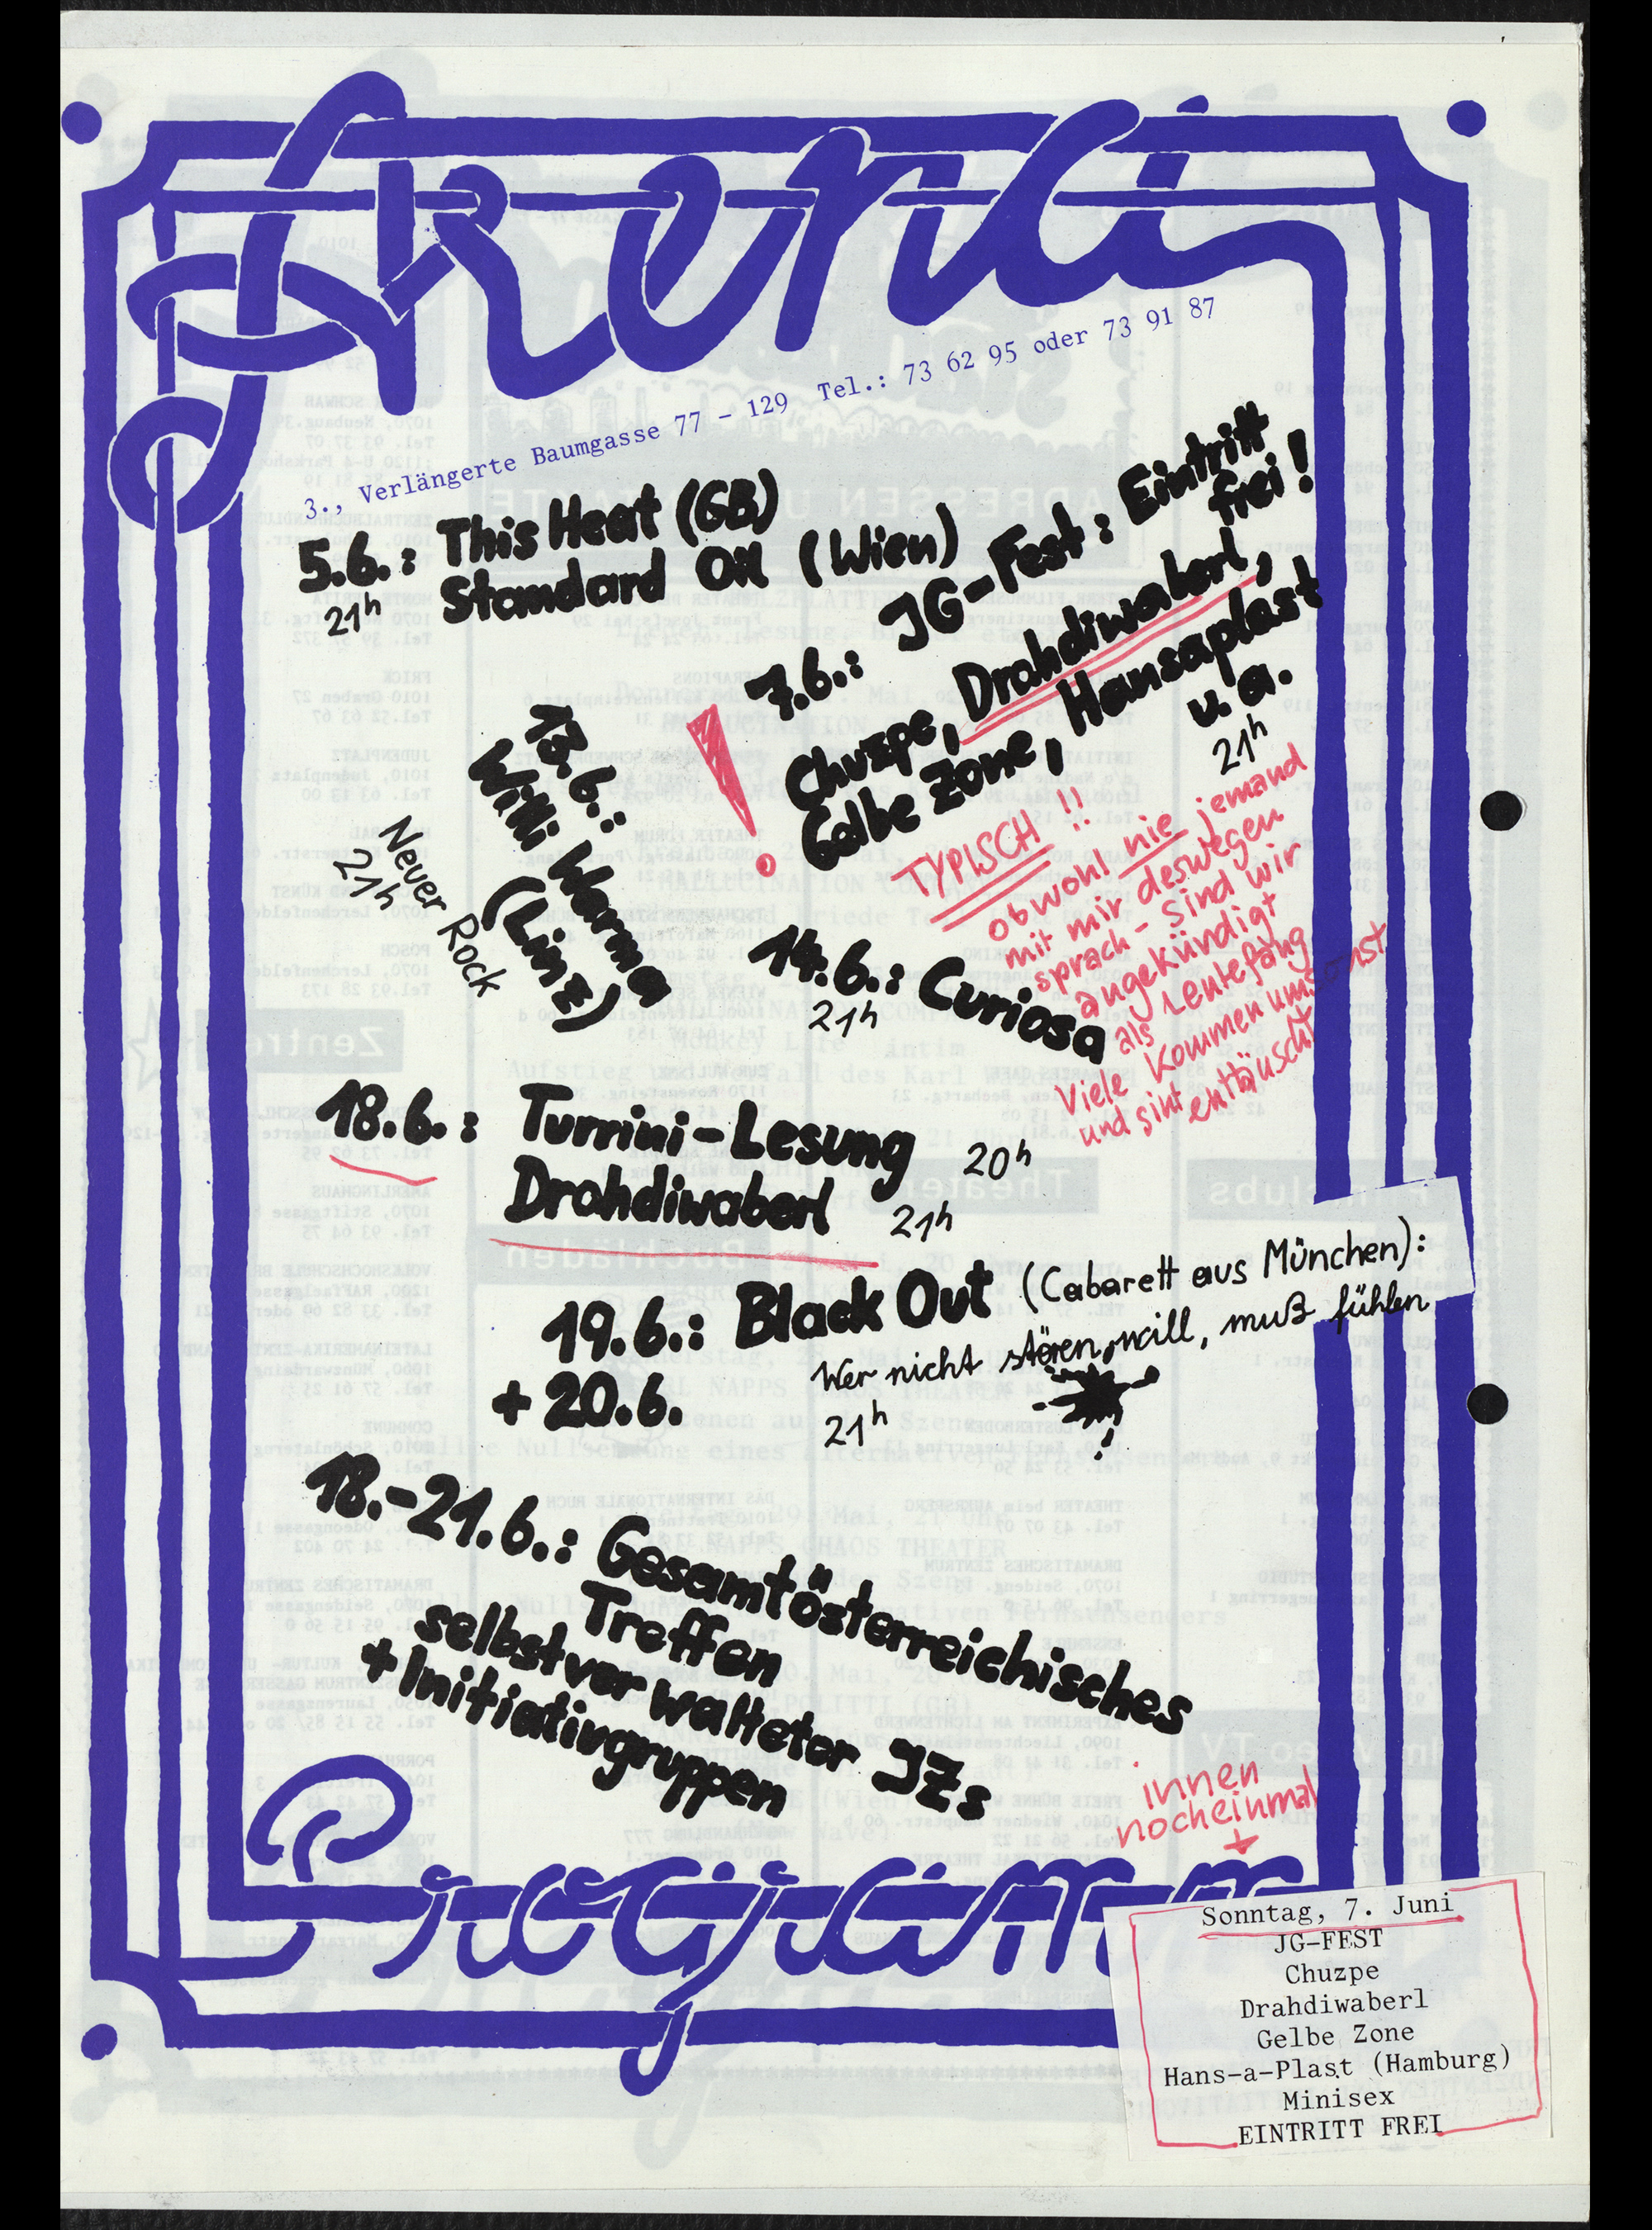 Arena
3., Verlängerte Baumgasse 77 - 129 Tel.: 73 62 95 oder 73 91 87
5.6.: This Heat (GB)
21h Standard Oil (Wien)
7.6.: JG-Fest: Eintritt
frei!
Chuzpe, Drahdiwaberl,
Gelbe Zone, Hansaplast
u.a.
21h
TYPISCH!!
obwohl nie jemand
mit mir deswegen
sprach - sind wir
angekündigt
als Leutefang
Viele kommen umsonst
und sint enttäuscht
13.6.:
Willi Warma
(Linz)
Neuer Rock
21h
14.6.: Curiosa
21h
18.6.: Turrini-Lesung 20h
Drahdiwaberl 21h
19.6.: Black Out (Cabarett aus München):
+ 20.6. Wer nicht stören will, muß fühlen
21h !
18.-21.6.: Gesamtösterreichisches
Treffen
selbstverwalteter JZs
+Initiativgruppen
innen
nocheinmal
Programm
Sonntag, 7. Juni
JG-FEST
Chuzpe
Drahdiwaberl
Gelbe Zone
Hans-a-Plast (Hamburg)
Minisex
EINTRITT FREI